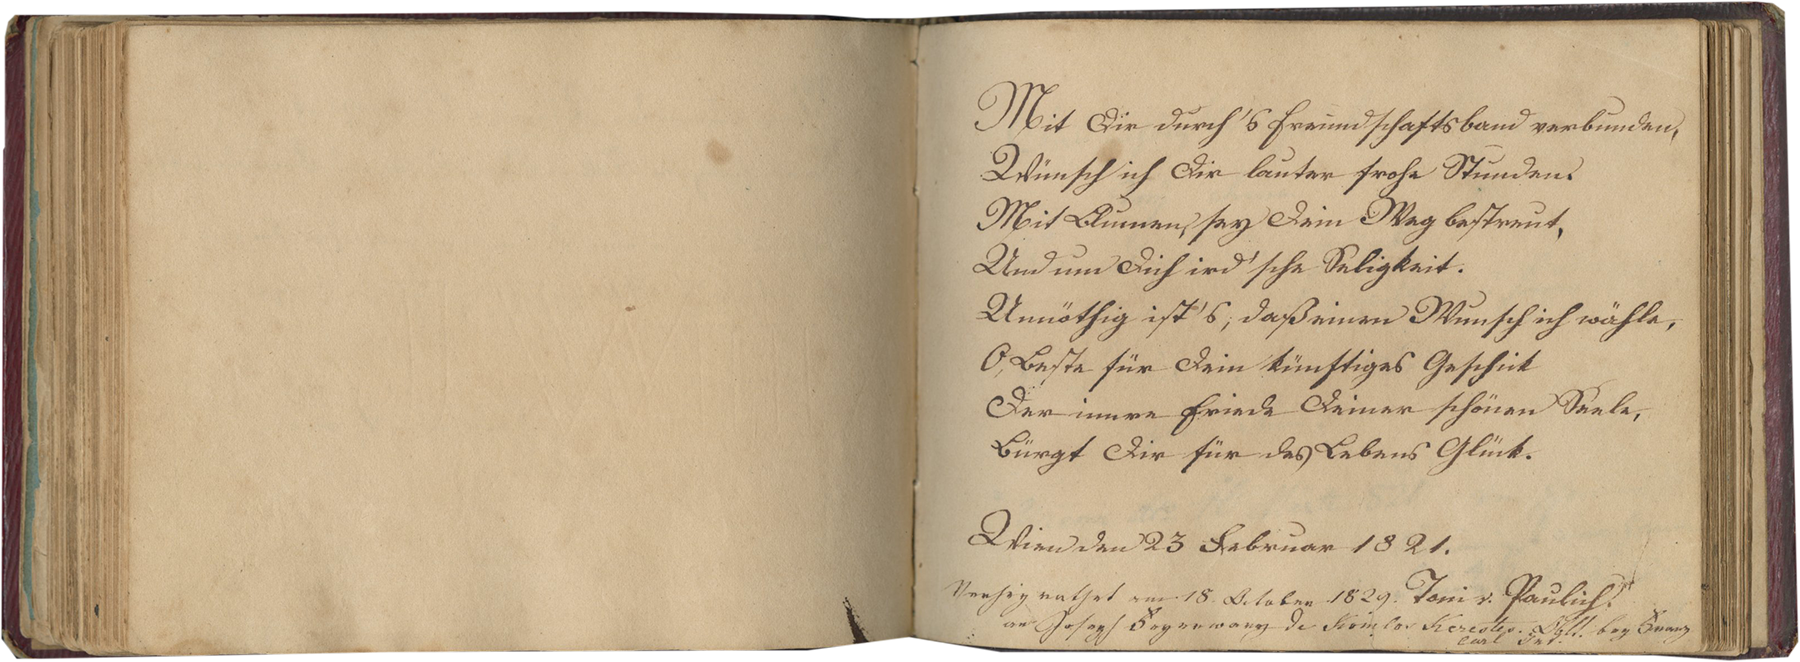 Mit Dir durch's Freundschaftsband verbunden,
Wünsch ich Dir lauter frohe Stunden.
Mit Blumen, sey Dein Weg bestreut,
Und um Dich ird'sche Seligkeit.
Unnöthig ist's, daß einen Wunsch ich wähle,
O, Beste für Dein künftiges Geschick
Der innre Friede Deiner schönen Seele,
Bürgt Dir für des Lebens Glück.
Wien den 23 Februar 1821.
Toni v. Paulich.
Verheyrathet am 18. October 1829.
an Joseph de Keresztes. bey Franz
Carl Inf.